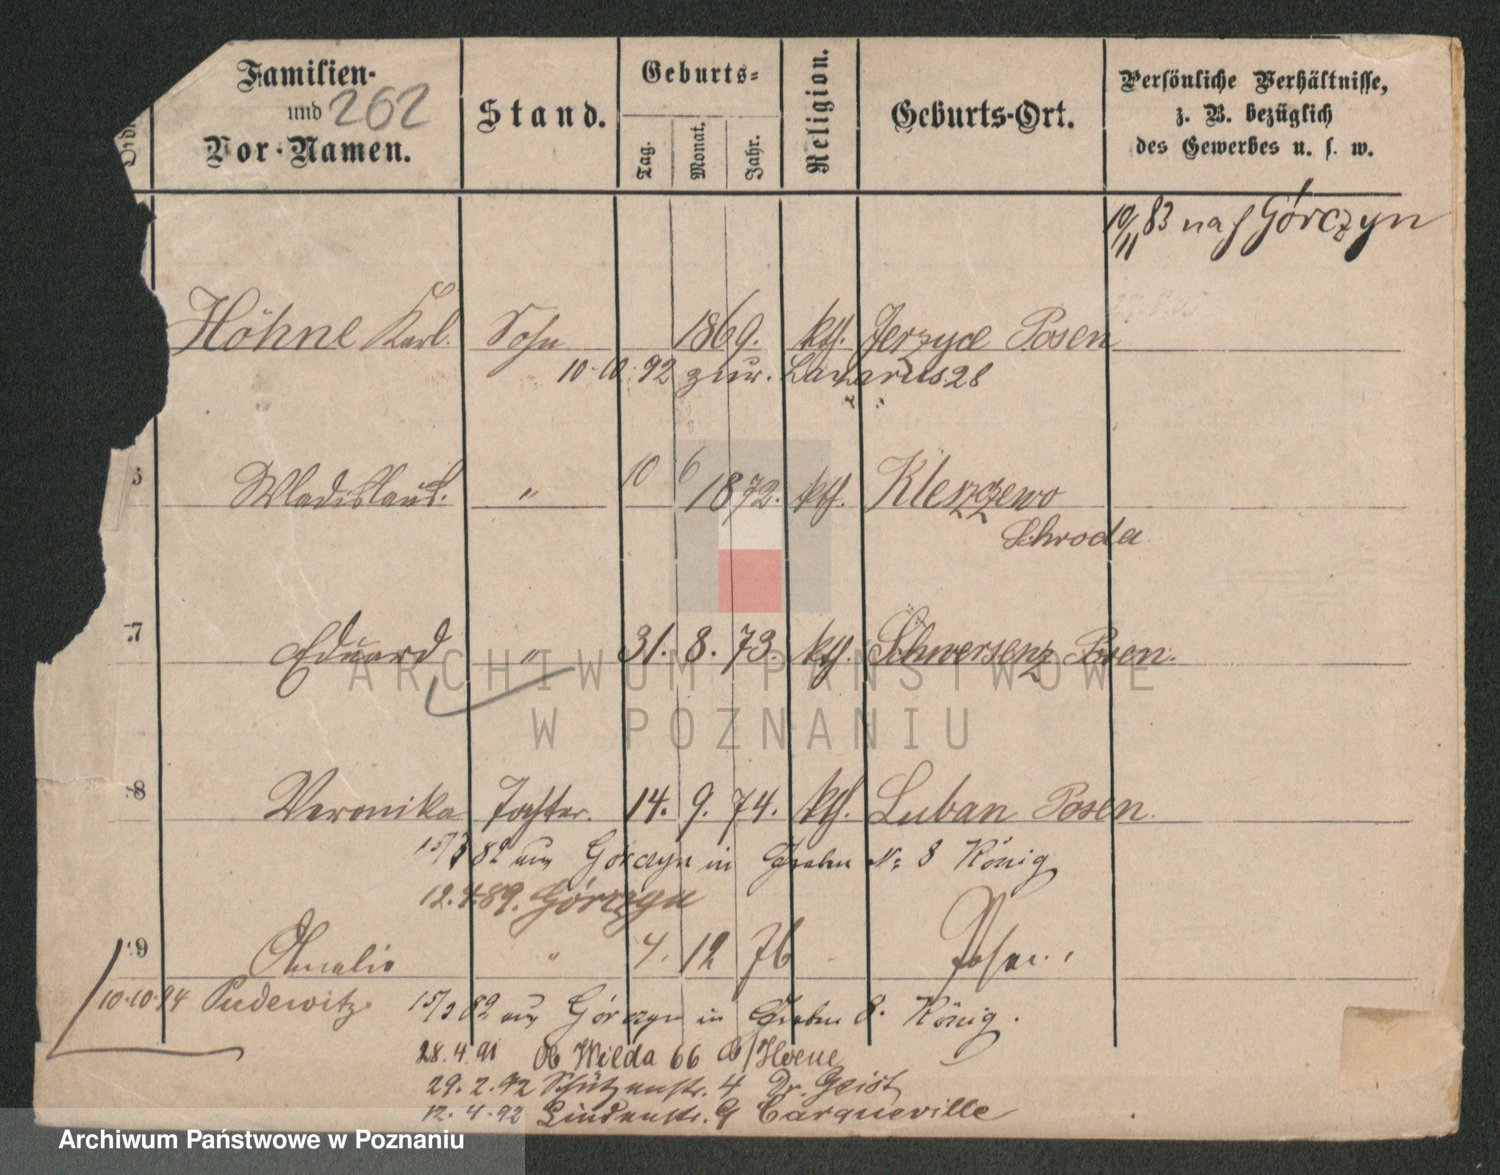 Familien-
und 262
Vor-Namen.
Stand.
Geburts-
Tag.
Monat.
Jahr.
Religion.
Geburts-Ort.
Persönliche Verhältnisse,
z. B. bezüglich
des Gewerbes u. s. w.
10/11 83 nach Górczyn
Höhne Karl. Sohn 1869. kth. Jerzyce Posen
10.10.92 zur. Lazarus 28
Wladislaus. " 10 6 1872. kth. Kleszczewo
Schroda
7 Eduard " 31. 8. 73. kth. Schwersenz Posen.
8 Veronika Tochter. 14. 9. 74. kth. Luban Posen.
15/3 82 aus Górczyn in Graben No 8 König
12.4.89. Górczyn
9 Amalie " 4. 12 76 Posen.
10.10.94 Pudewitz
15/3 82 aus Górczyn in Graben 8. König.
28.4.91 Wilda 66 b/ Hoene
29.2.92 Schützenstr. 4 Dr. Geist
12.4.92 Lindenstr. 9 Carqueville
ARCHIWUM PAŃSTWOWE
W POZNANIU
Archiwum Państwowe w Poznaniu